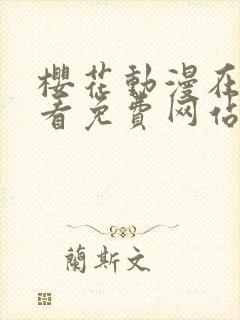 櫻花動漫在
看免費网佔
蘭斯文